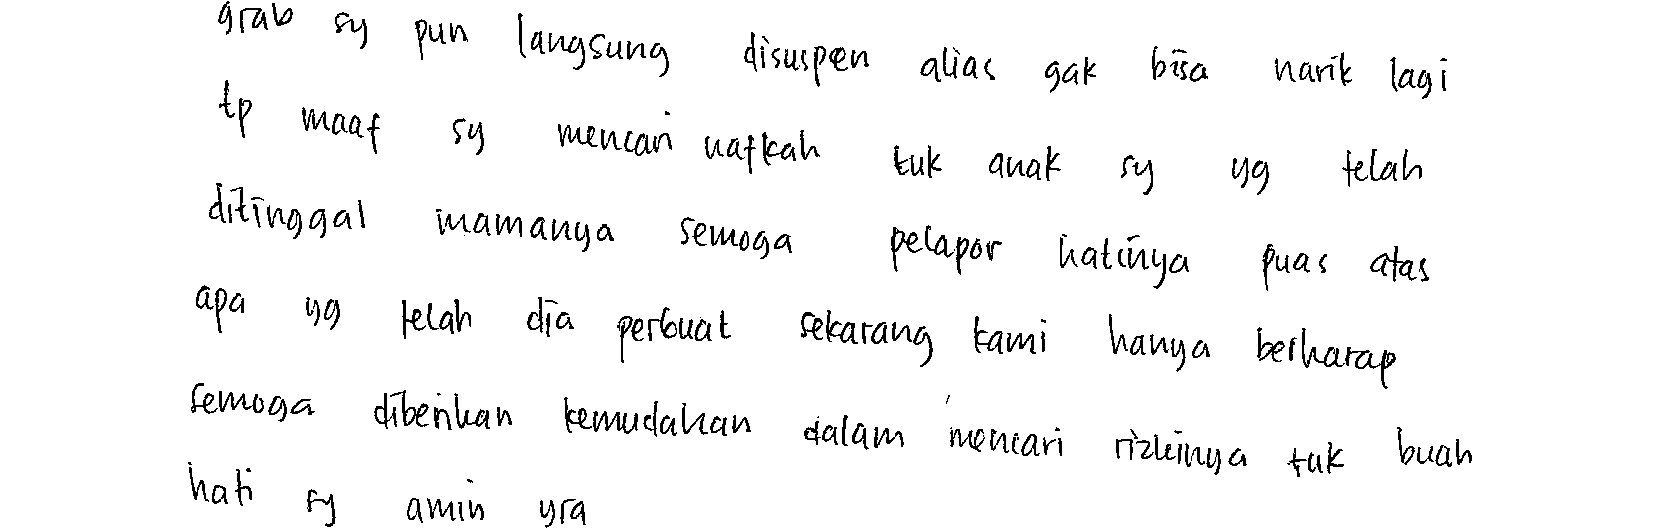 grab sy pun langsung disuspen alias gak bisa narik lagi
tp maaf sy mencari nafkah tuk anak sy yg telah
ditinggal mamanya semoga pelapor hatinya puas atas
apa yg telah dia perbuat sekarang kami hanya berharap
semoga diberikan kemudahan dalam mencari rizkinya tuk buah
hati sy amin yra